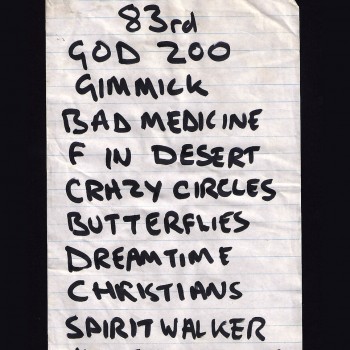 83rd
GOD ZOO
GIMMICK
BAD MEDICINE
F IN DESERT
CRAZY CIRCLES
BUTTERFLIES
DREAMTIME
CHRISTIANS
SPIRITWALKER